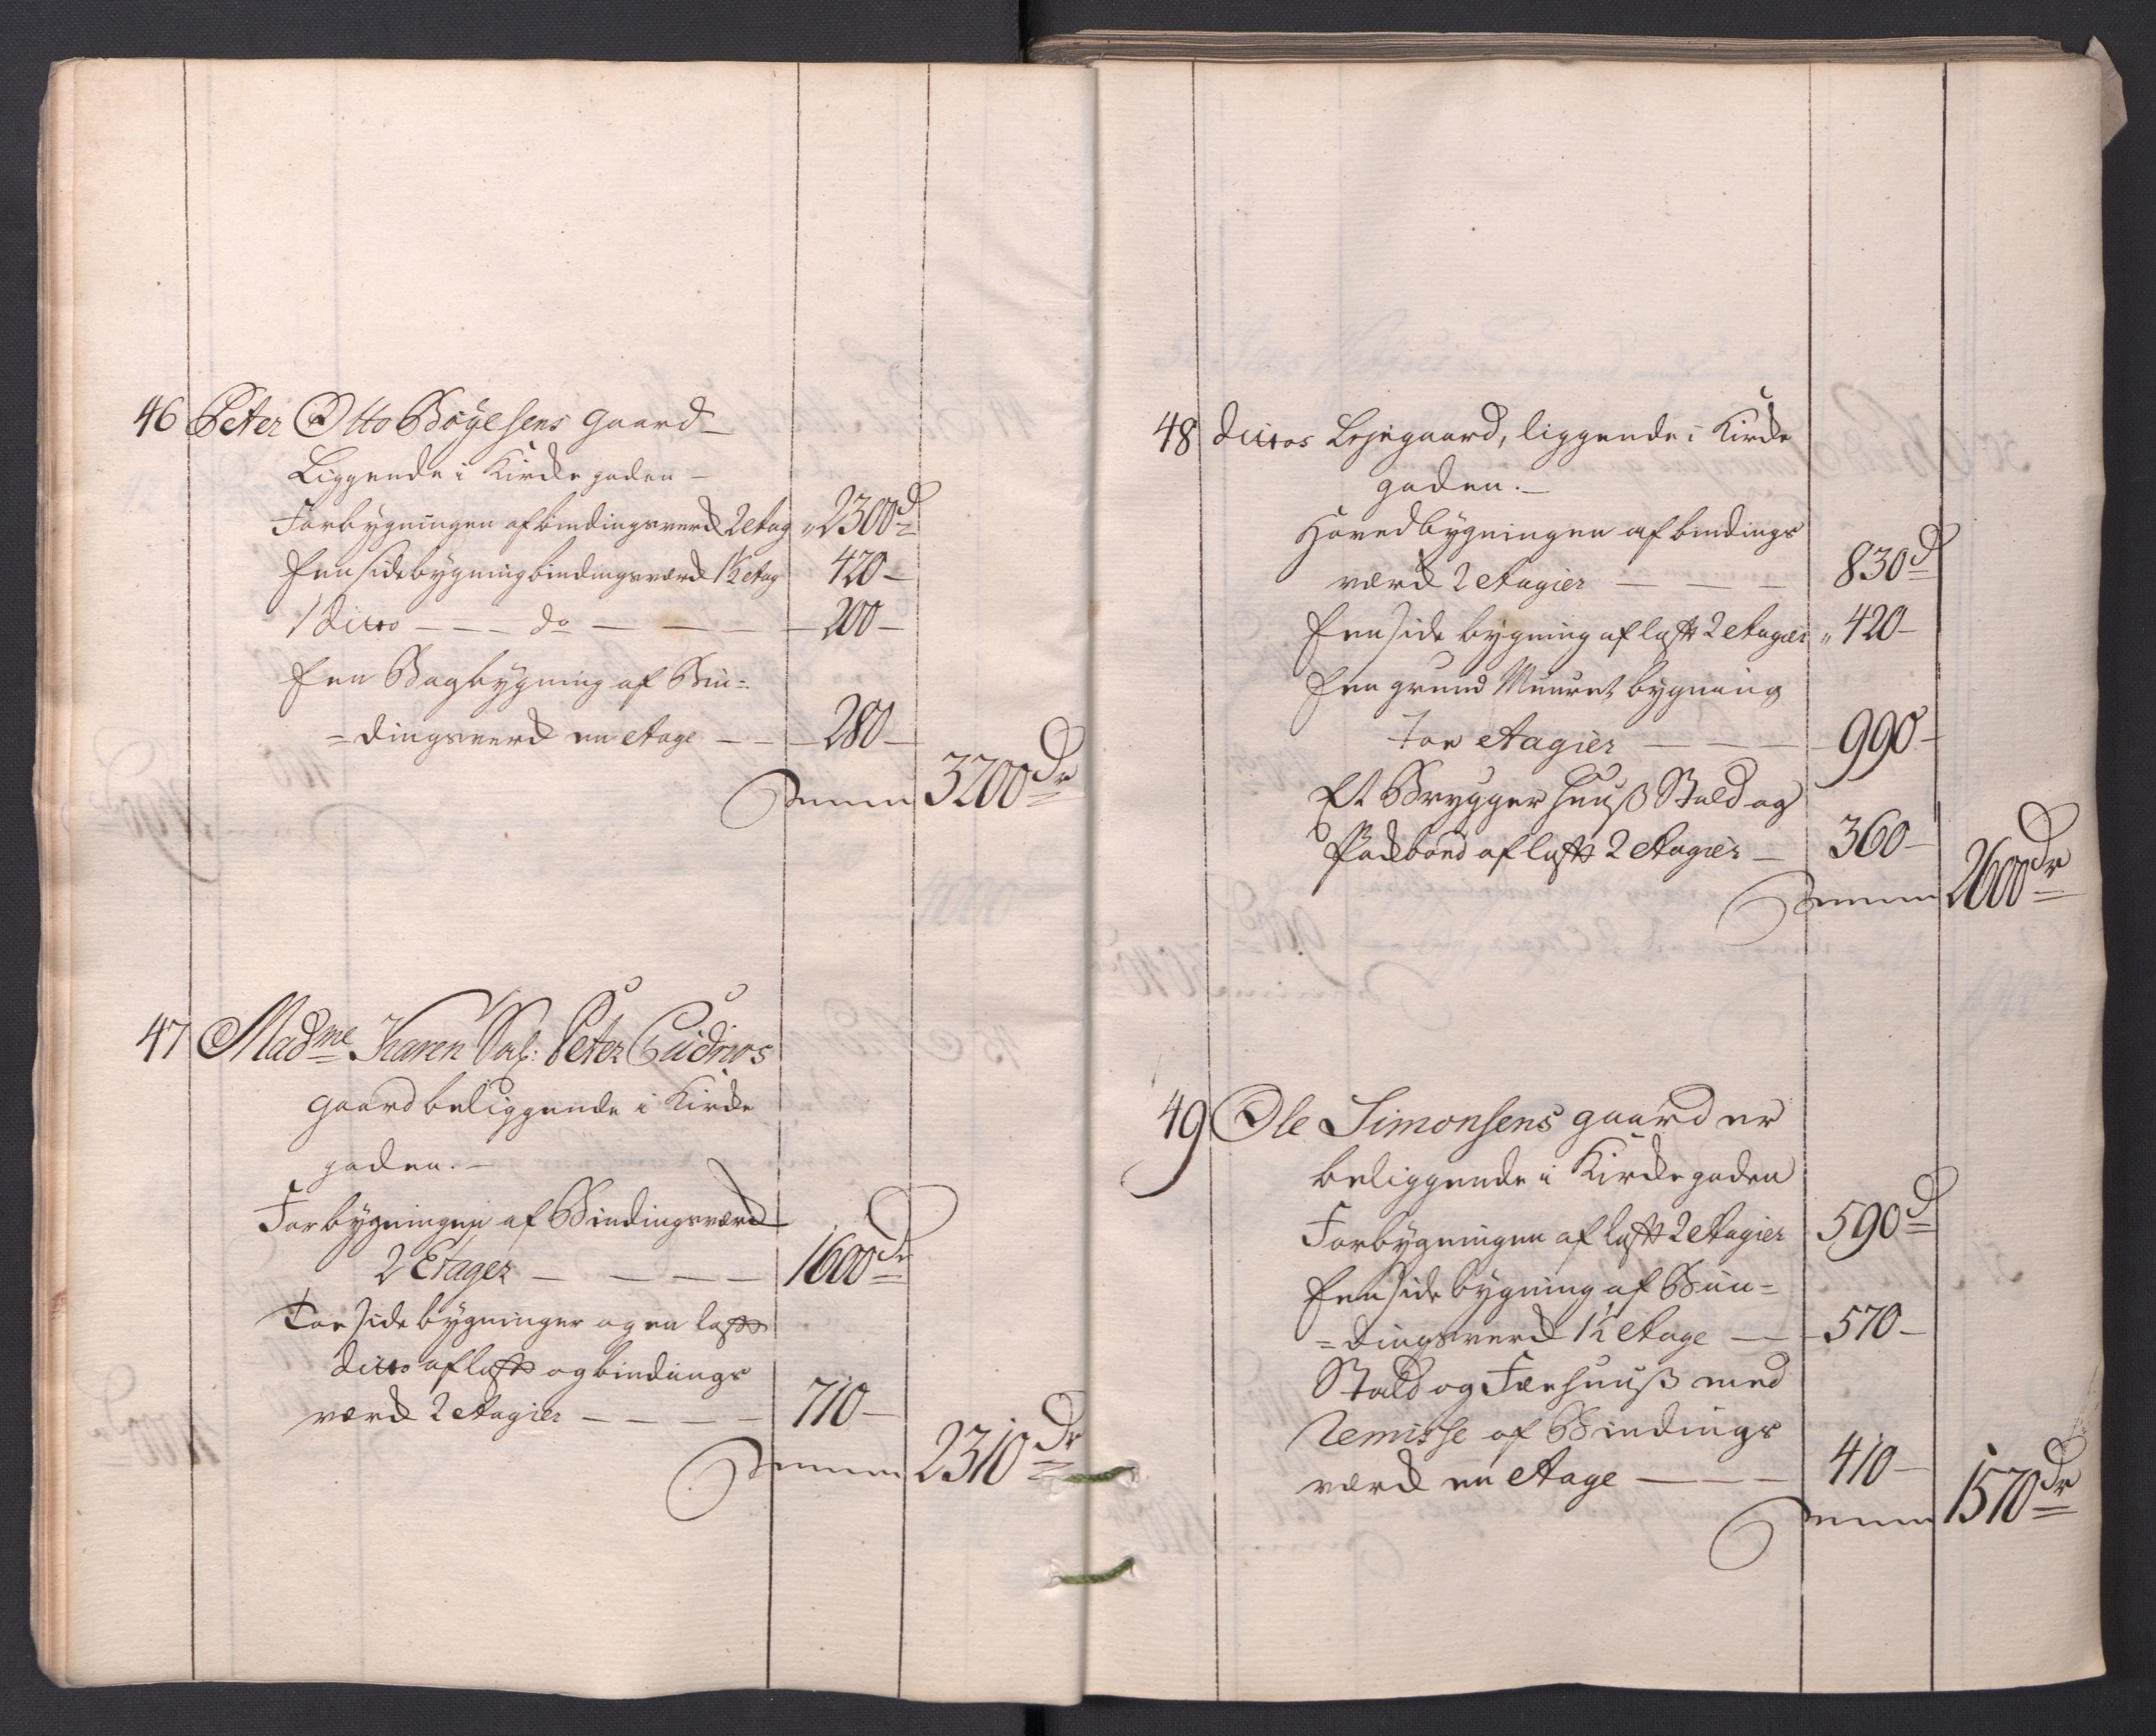 46 Peter Otto Bøyesens Gaard
Liggende i Kirke gaden
Forbygningen af bindingsverk 2 etag „ 2300d
Een sidebygning bindingsværk 1½ etag 420
1 ditto do 200
Een Bagbygning af Bin=
=dingsverk en etage 280
Summa 3200dr
47 Madme Karen Sal: Peter
gaard beliggende i Kirke
gaden.
Forbygningen af Bindingsværk
2 Etager 1600dr
Toe side bygninger og en lafte
ditto af lafte og bindings
værk 2 etagier 710
Summa 2310dr
48 dittos Lejegaard, liggende i Kirke
gaden.
Hovedbygningen af bindings
værk 2 etagier 830d
Een side bygning af lafte 2 etagier „ 420
Een grund Muuret bygning
toe etagier 990
Et Brygger huuß Stald og
Pakboed af lafte 2 etagier 360
Summa 2600dr
49 Ole Simonsens gaard er
beliggende i Kirke gaden
Forbygningen af lafte 2 etagier 590d
Een side bygning af Bin=
=dingsverk 1½ etage 570
Stald og Fæehuuß med
Remisse af Bindings
værk en etage 410
Summa 1570dr